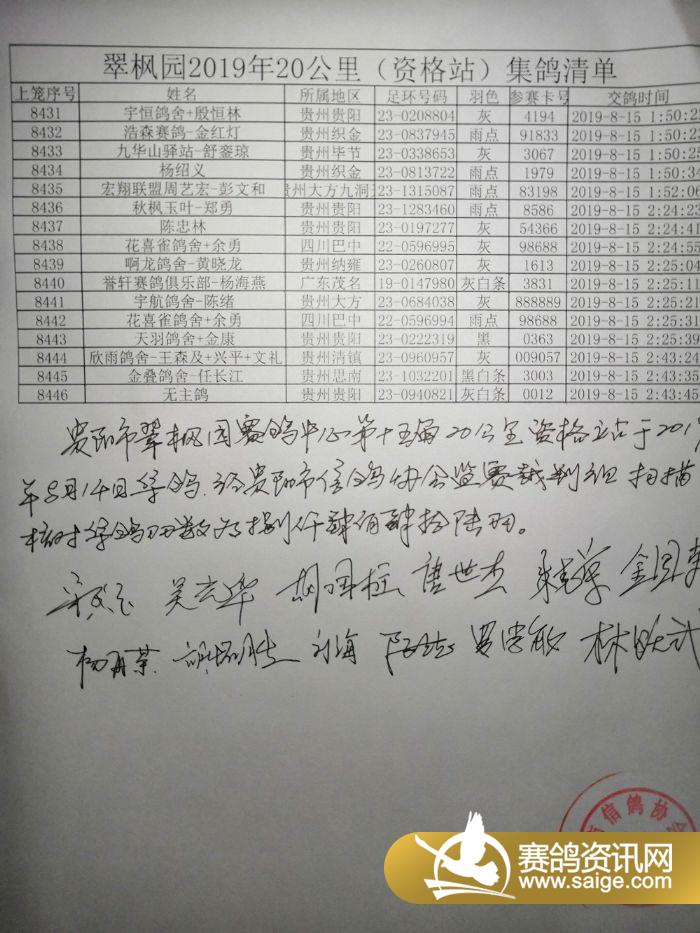 翠枫园2019年20公里（资格站）集鸽清单
上笼序号 姓名 所属地区 足环号码 羽色 参赛卡号 交鸽时间
8431 宇恒鸽舍+殷恒林 贵州贵阳 23-0208804 灰 4194 2019-8-15 1:50:2
8432 浩森赛鸽-金红灯 贵州织金 23-0837945 雨点 91833 2019-8-15 1:50:2
8433 九华山驿站-舒銮琼 贵州毕节 23-0338653 灰 3067 2019-8-15 1:50:2
8434 杨绍义 贵州织金 23-0813722 雨点 1979 2019-8-15 1:50:3
8435 宏翔联盟周艺宏-彭文和 贵州大方九洞 23-1315087 雨点 83198 2019-8-15 1:52:0
8436 秋枫玉叶-郑勇 贵州贵阳 23-1283460 雨点 8586 2019-8-15 2:24:23
8437 陈忠林 贵州贵阳 23-0197277 灰 54366 2019-8-15 2:24:41
8438 花喜雀鸽舍+余勇 四川巴中 22-0596995 灰 98688 2019-8-15 2:24:55
8439 啊龙鸽舍-黄晓龙 贵州纳雍 23-0260807 灰 1613 2019-8-15 2:25:04
8440 誉轩赛鸽俱乐部-杨海燕 广东茂名 19-0147980 灰白条 3831 2019-8-15 2:25:11
8441 宇航鸽舍-陈绪 贵州大方 23-0684038 灰 888889 2019-8-15 2:25:2
8442 花喜雀鸽舍+余勇 四川巴中 22-0596994 雨点 98688 2019-8-15 2:25:31
8443 天羽鸽舍+金康 贵州贵阳 23-0222319 黑 0363 2019-8-15 2:25:39
8444 欣雨鸽舍-王森及+兴平+文礼 贵州清镇 23-0960957 灰 009057 2019-8-15 2:43:24
8445 金叠鸽舍-任长江 贵州思南 23-1032201 黑白条 3003 2019-8-15 2:43:35
8446 无主鸽 贵州贵阳 23-0940821 灰白条 0012 2019-8-15 2:43:45
贵阳市翠枫园赛鸽中心第十五届20公里资格站于201
年8月14日集鸽.经贵阳市信鸽协会监赛裁判组扫描
核对集鸽羽数为捌仟肆佰肆拾陆羽。
吴云华 胡国柱 唐世杰
刘海 林跃武
信鸽协
赛鸽资讯网
www.saige.com